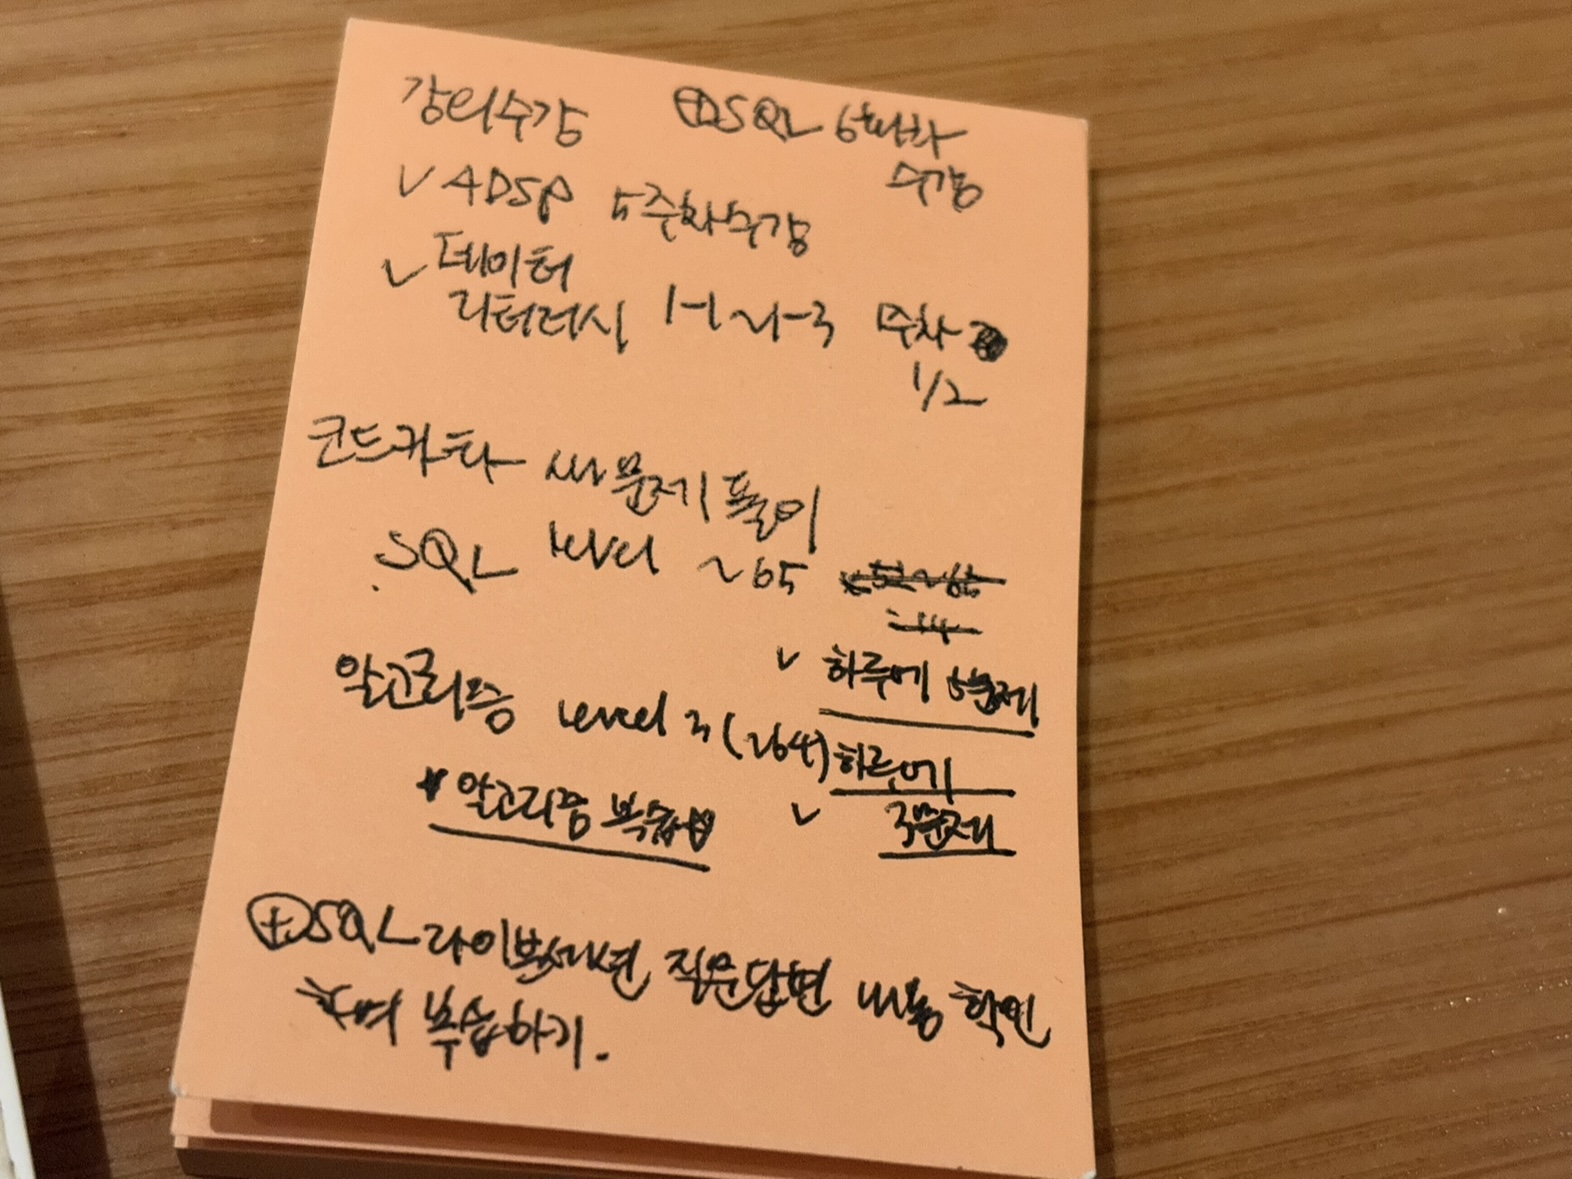 강의수강 ⊕SQL 6회차
수강
✓ ADSP 5주차수강
✓ 데이터
리터러시 1-1~1-3 주차
1/2
코드카타 문제풀이
SQL level ~65
✓ 하루에 5문제
알고리즘 level 3 (~64) 하루에
✓ 3문제
* 알고리즘 복습
⊕SQL 라이브세션 질문답변 내용 확인
하며 복습하기.